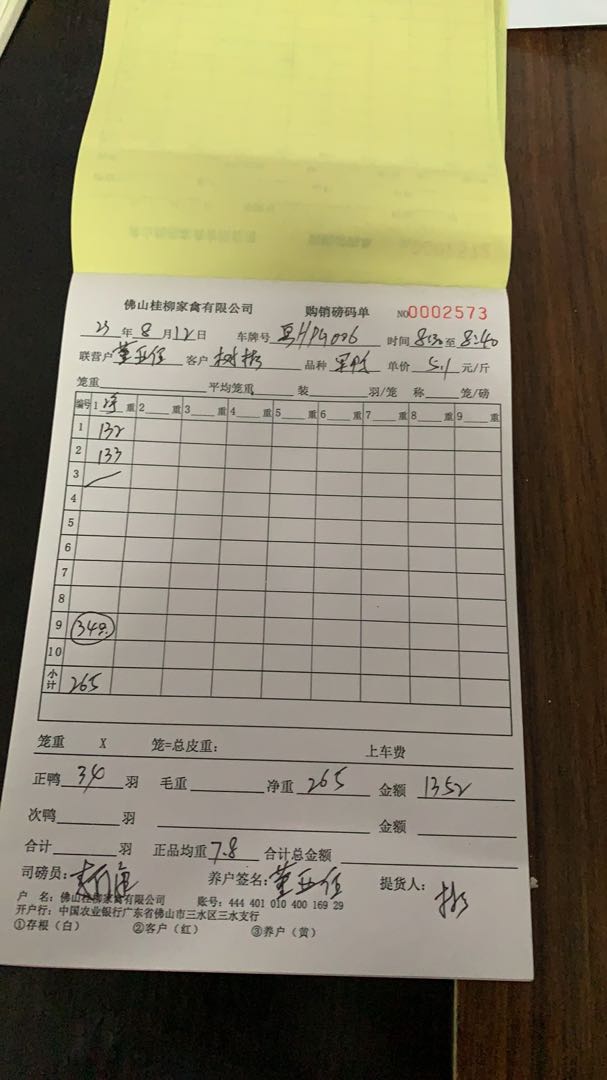 佛山桂柳家禽有限公司 购销磅码单 NO 0002573
23 年 8 月 12 日 车牌号 时间 8:30 至 8:40
联营户 董亚 客户 树 品种 单价 5.1 元/斤
笼重 平均笼重 装 羽/笼 称 笼/磅
编号 1 净 重 2 重 3 重 4 重 5 重 6 重 7 重 8 重 9 重
1 132
2 133
3
4
5
6
7
8
9 34只
10
小计 265
笼重 X 笼=总皮重: 上车费
正鸭 34 羽 毛重 净重 265 金额 1352
次鸭 羽 金额
合计 羽 正品均重 7.8 合计总金额
司磅员: 养户签名: 董亚 提货人:
户 名: 佛山桂柳家禽有限公司 账号: 444 401 010 400 169 29
开户行: 中国农业银行广东省佛山市三水区三水支行
①存根（白） ②客户（红） ③养户（黄）